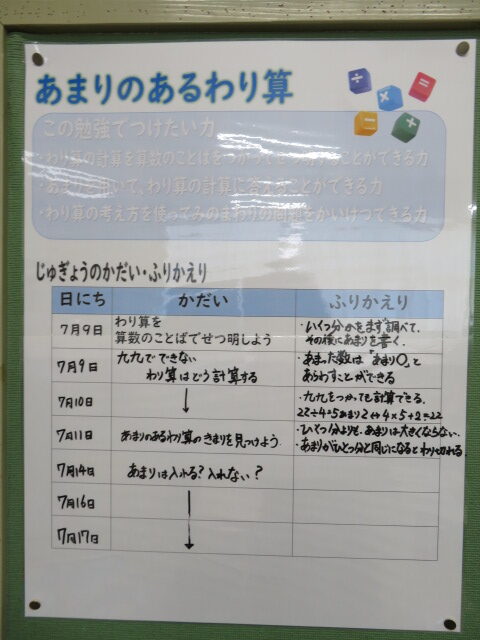 あまりのあるわり算
この勉強でつけたい力
・わり算の計算を算数のことばをつかってせつ明することができる力
・あまりを用いて、わり算の計算に答えることができる力
・わり算の考え方を使ってみのまわりの問題をかいけつできる力
じゅぎょうのかだい・ふりかえり
日にち かだい ふりかえり
7月9日 わり算を
算数のことばでせつ明しよう
・いくつ分かをまず調べて、
その後にあまりを書く。
7月9日 九九でできない
わり算はどう計算する
・あまった数は「あまり〇」と
あらわすことができる
7月10日 ↓
・九九をつかっても計算できる。
22÷4=5あまり2↔4×5+2=22
7月11日 あまりのあるわり算のきまりを見つけよう
・ひとつ分よりも、あまりは大きくならない.
・あまりがひとつ分と同じになるとわり切れる.
7月14日 あまりは入れる?入れない?
7月16日
7月17日 ↓